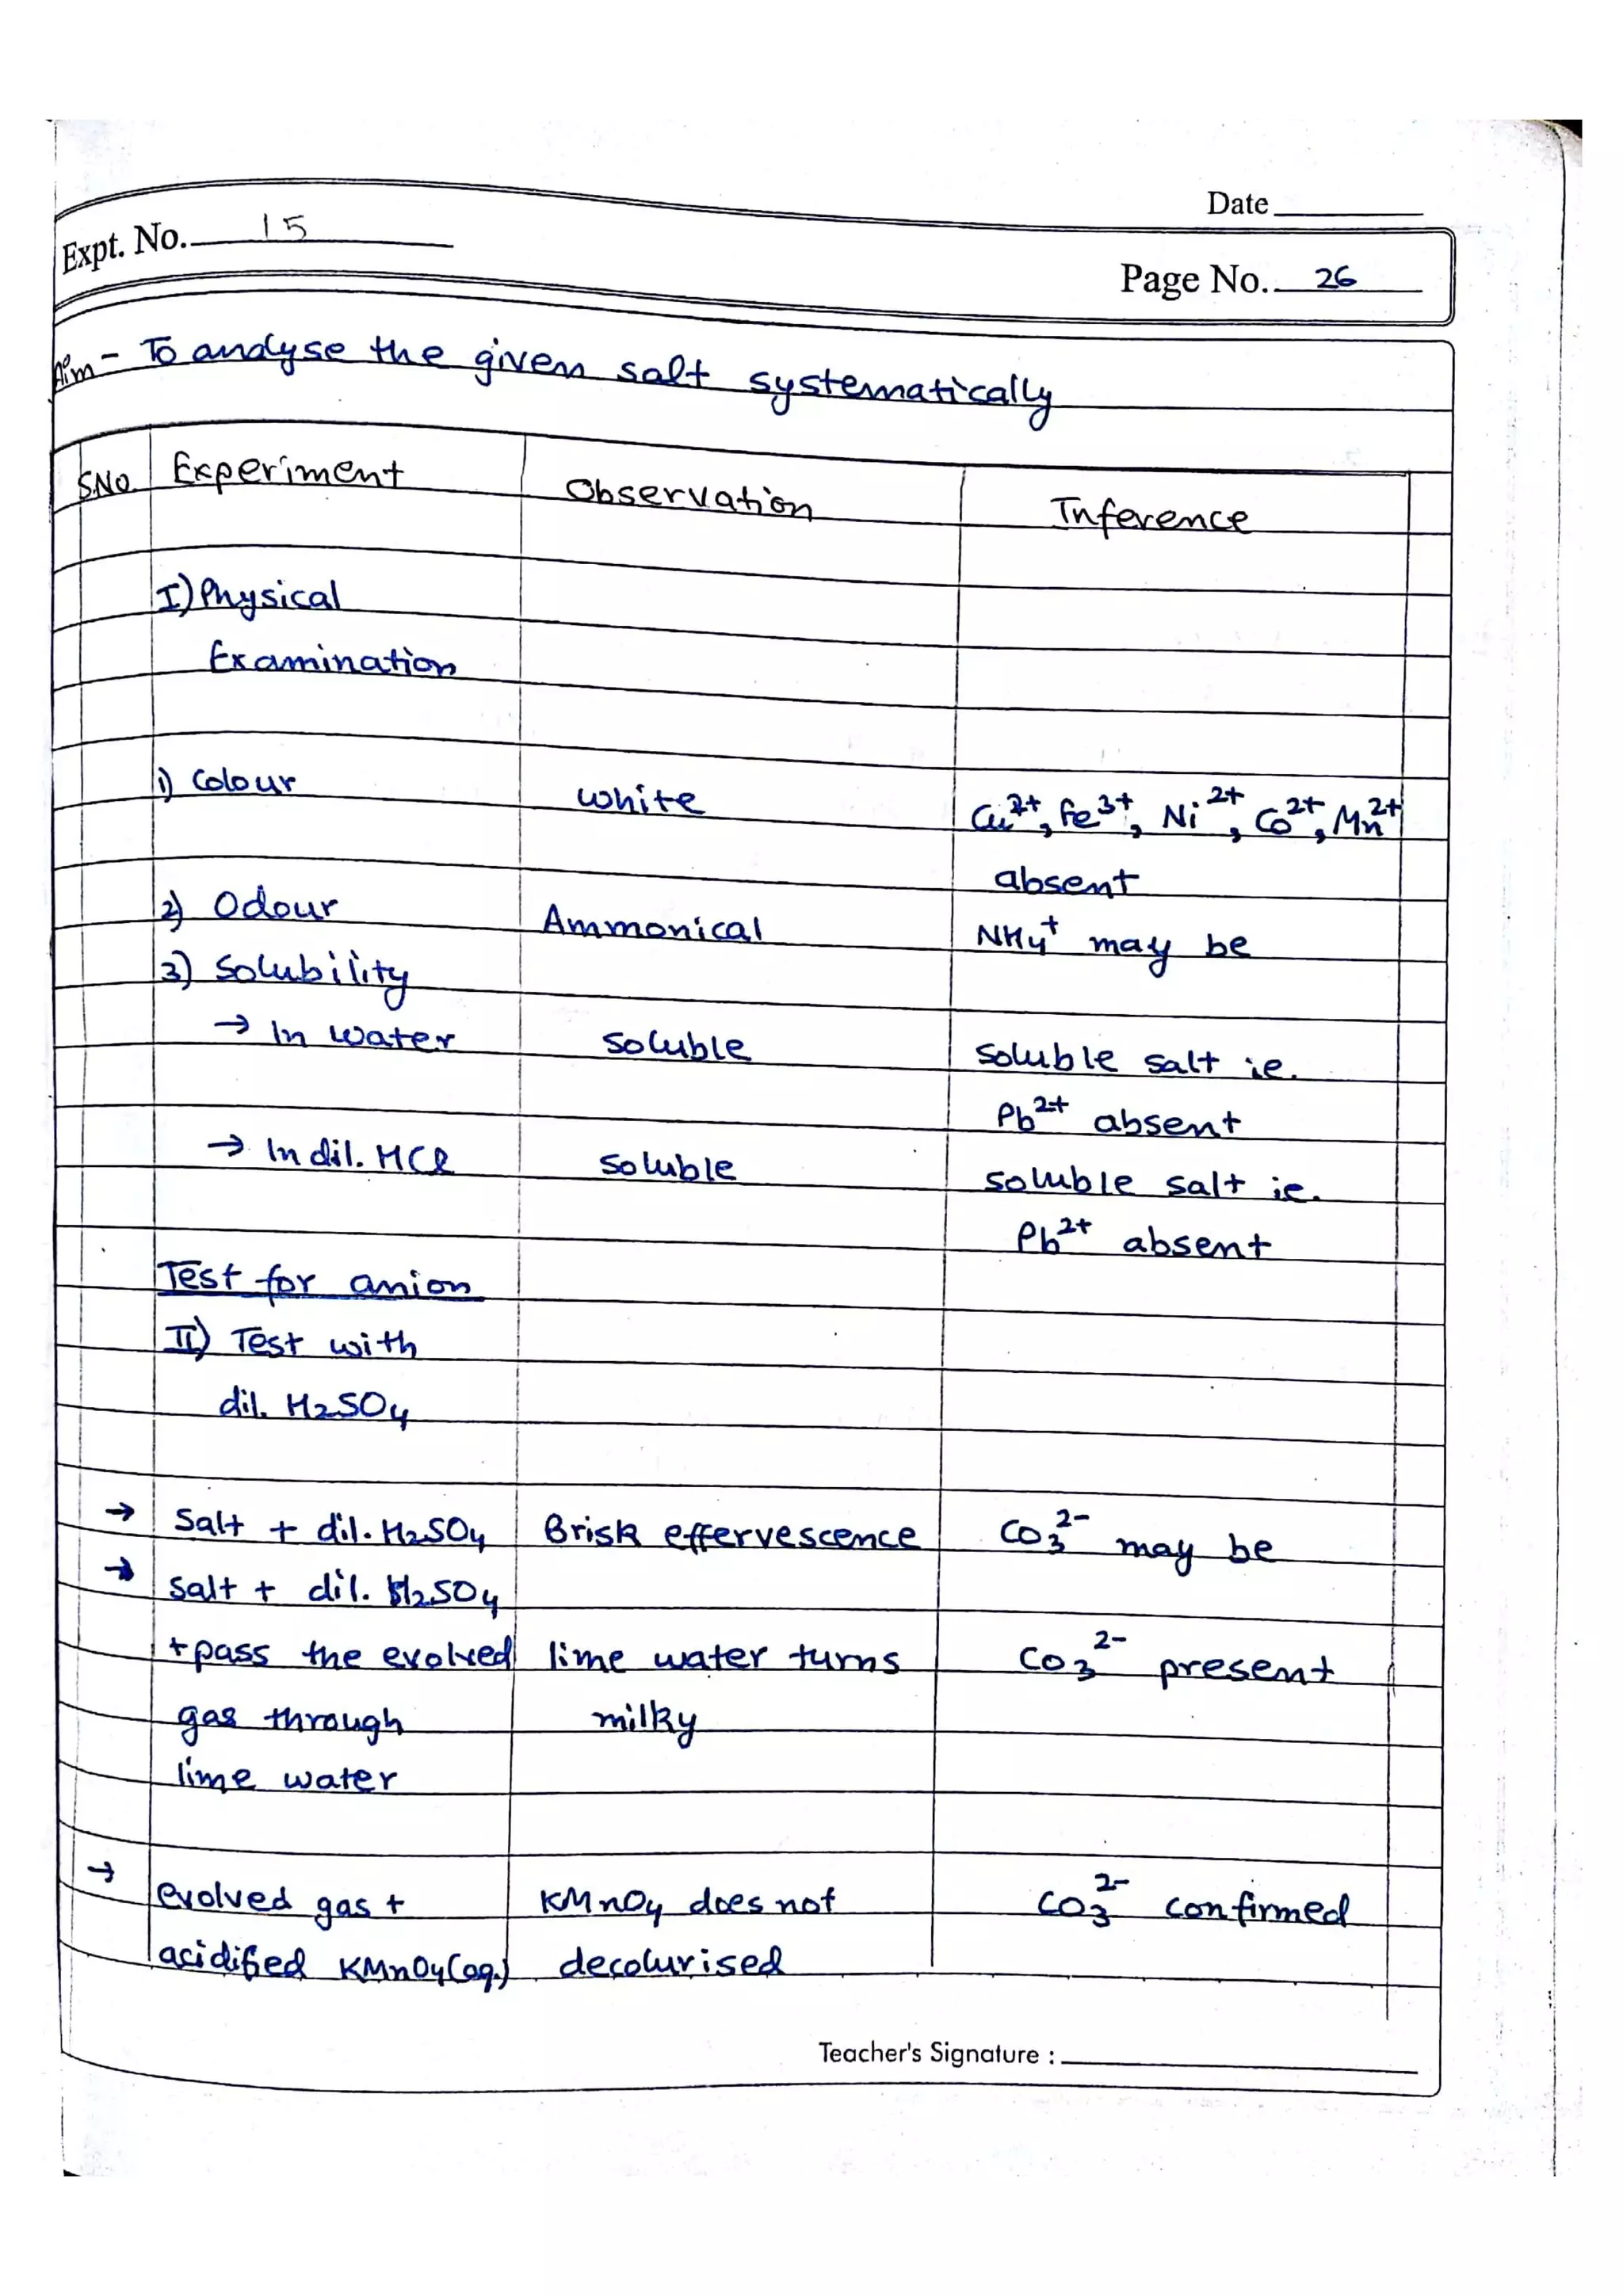 Date
Expt. No. 15
Page No. 26
Aim - To analyse the given salt systematically
S.No. Experiment Observation Inference
I) Physical
Examination
1) Colour white Cu²⁺, Fe³⁺, Ni²⁺, Co²⁺, Mn²⁺
absent
2) Odour Ammonical NH₄⁺ may be
3) Solubility
→ In water soluble soluble salt ie.
Pb²⁺ absent
→ In dil. HCl soluble soluble salt ie.
Pb²⁺ absent
Test for anion
II) Test with
dil. H₂SO₄
→ Salt + dil. H₂SO₄ Brisk effervescence CO₃²⁻ may be
→ salt + dil. H₂SO₄
+ pass the evolved lime water turns CO₃²⁻ present
gas through milky
lime water
→ evolved gas + KMnO₄ does not CO₃²⁻ confirmed
acidified KMnO₄(aq.) decolurised
Teacher's Signature :